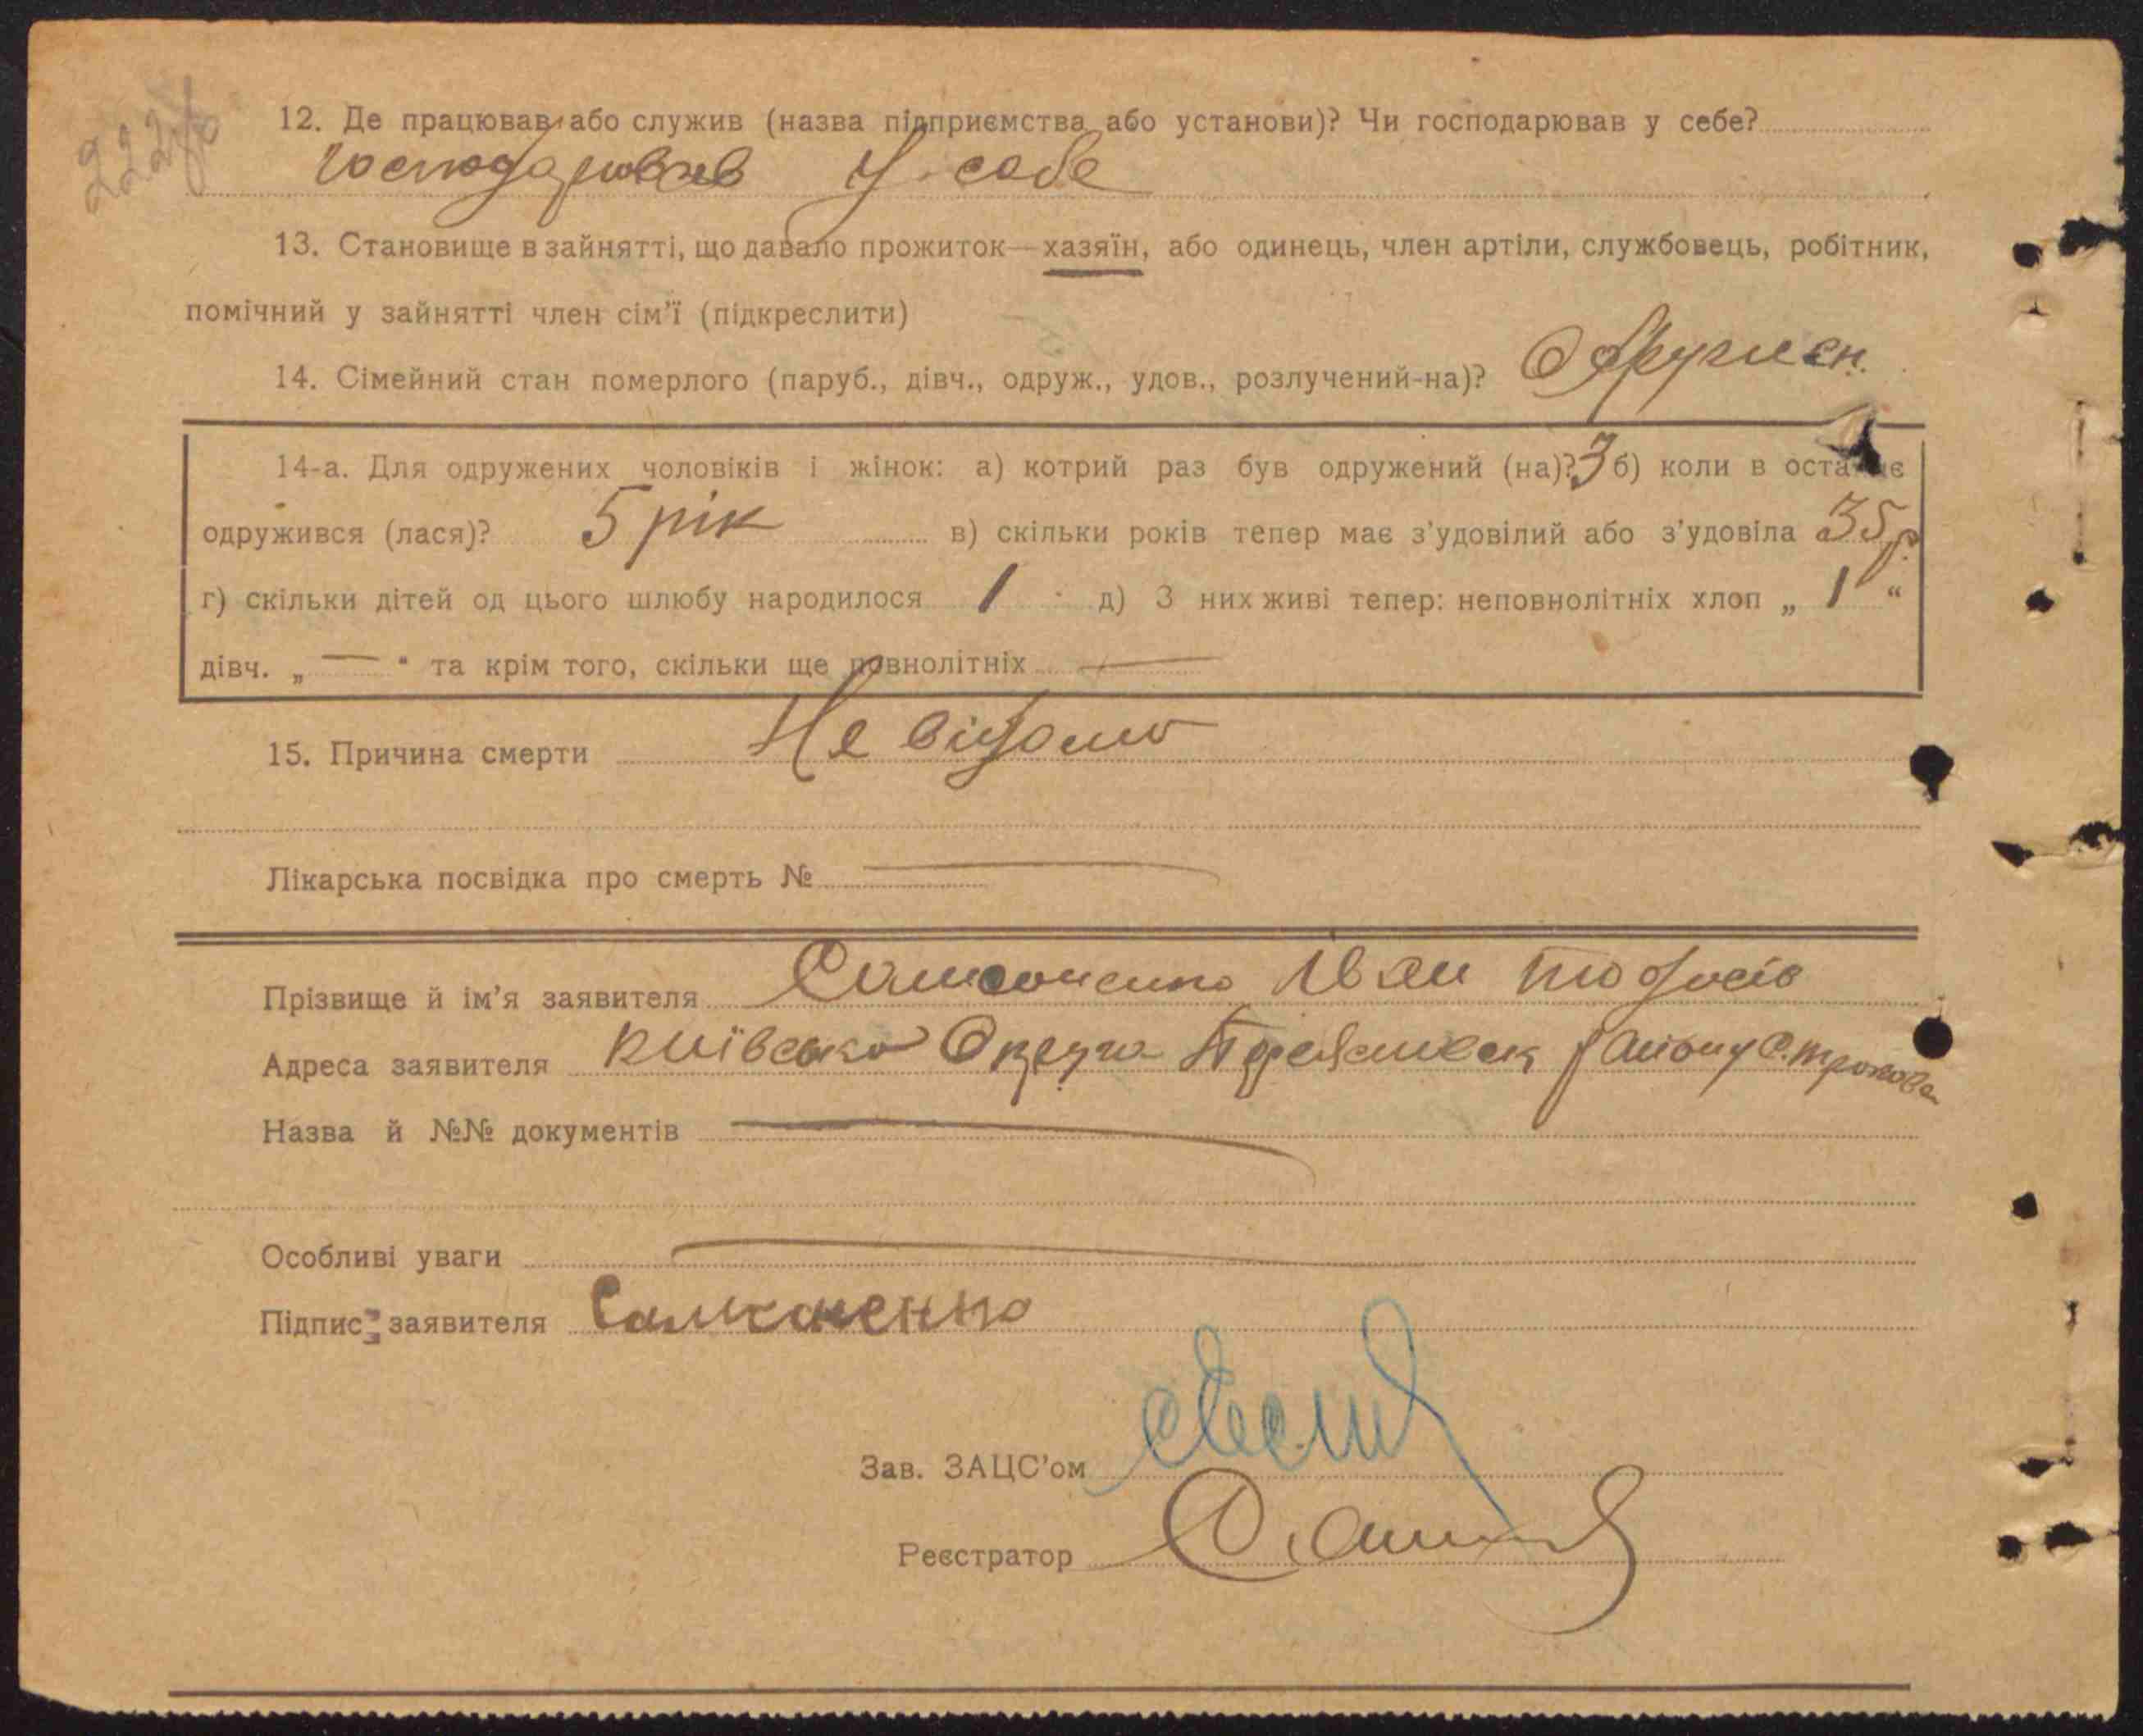 222
12. Де працював або служив (назва підприємства або установи)? Чи господарював у себе?
Господарював У себе
13. Становище в зайнятті, що давало прожиток—хазяїн, або одинець, член артіли, службовець, робітник,
помічний у зайнятті член сім'ї (підкреслити)
14. Сімейний стан померлого (паруб., дівч., одруж., удов., розлучений-на)? Одружен.
14-а. Для одружених чоловіків і жінок: а) котрий раз був одружений (на)? 3 б) коли в останнє
одружився (лася)? 5 рік в) скільки років тепер має з'удовілий або з'удовіла 35 р.
г) скільки дітей од цього шлюбу народилося 1 д) З них живі тепер: неповнолітніх хлоп „ 1 “
дівч. „ — “ та крім того, скільки ще повнолітніх —
15. Причина смерти Не відомо
Лікарська посвідка про смерть № —
Прізвище й ім'я заявителя Самсоненко Іван Тодосів
Адреса заявителя Київська Округа району с.
Назва й №№ документів —
Особливі уваги —
Підпис заявителя Самсоненко
Зав. ЗАЦС'ом
Реєстратор